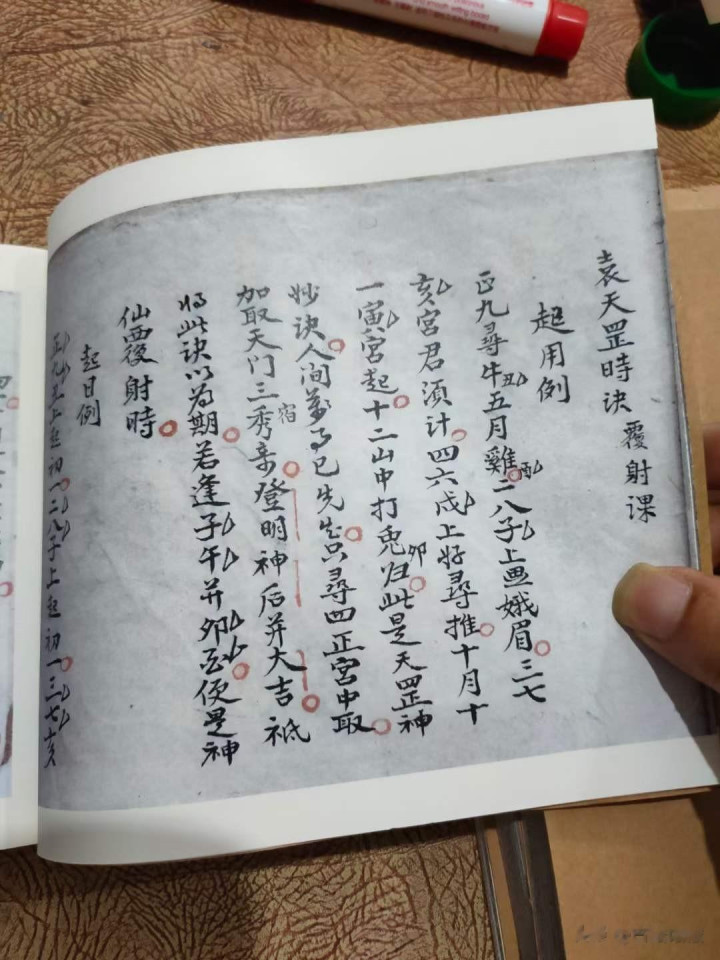 袁天罡時诀 覆射课
起用例
正九尋牛丑五月雞酉二八子上画娥眉三七
亥宮君須计四六戌上好尋推十月十
一寅宮起十二山中打兎卯归此是天罡神
妙诀人间萬事已先生只尋四正宮中取
加取天门三秀宿來登明神后并大吉祇
将此诀以為期若逢子午并卯酉便是神
仙覆射時
起日例
正九丑上起初一二八子上起初一三七亥